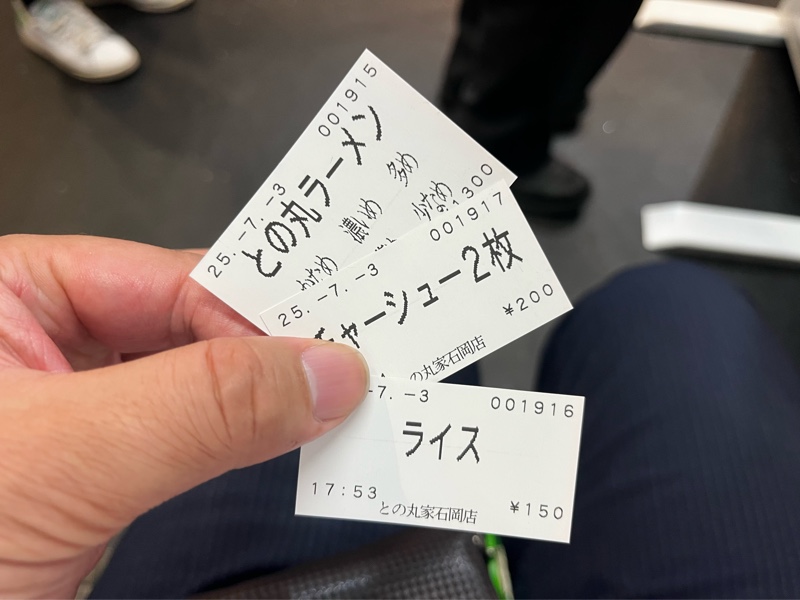 25.-7.-3
001915
との丸ラーメン
濃いめ
多め
かため
少なめ
1300
25.-7.-3
001917
チャーシュー2枚
¥200
の丸家石岡店
-7.-3
001916
ライス
17:53
¥150
との丸家石岡店